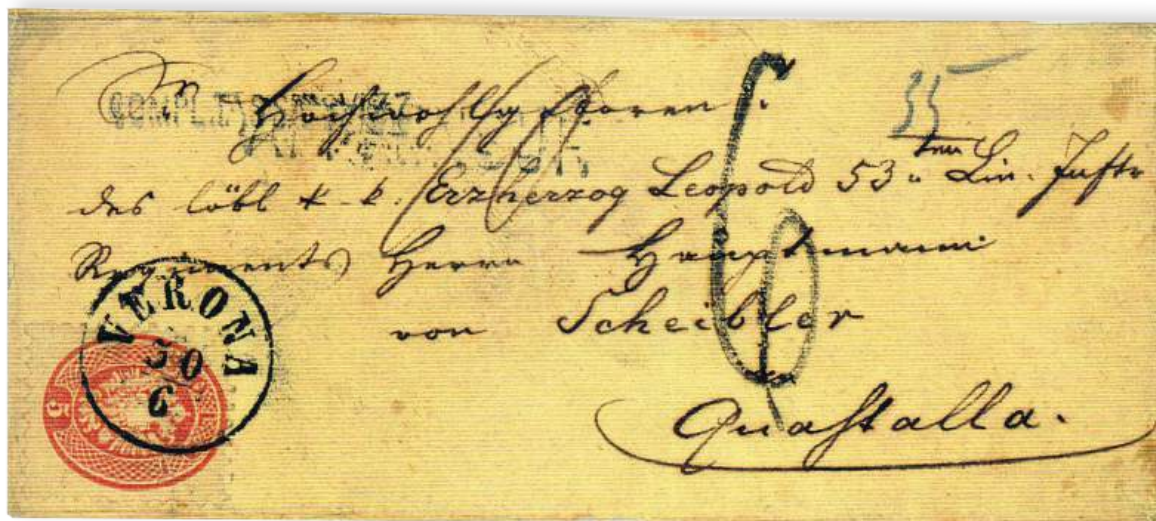 Hochwohlgeboren
35
des löbl k. k. Erzherzog Leopold 53ten Lin. Inftr
Regiments Herrn Hauptmann
von Scheibler
Guastalla.
6
VERONA
30
6
5